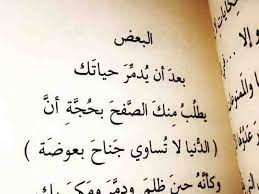 البعض
بعد أن يُدمِّرَ حياتَك
يطلُبُ منكَ الصَّفحَ بحُجَّةِ أنَّ
( الدُّنيا لا تُساوي جَناحَ بعوضَة )
وكأنَّهُ حينَ ظلمَ ودمَّرَ ومكرَ بكَ